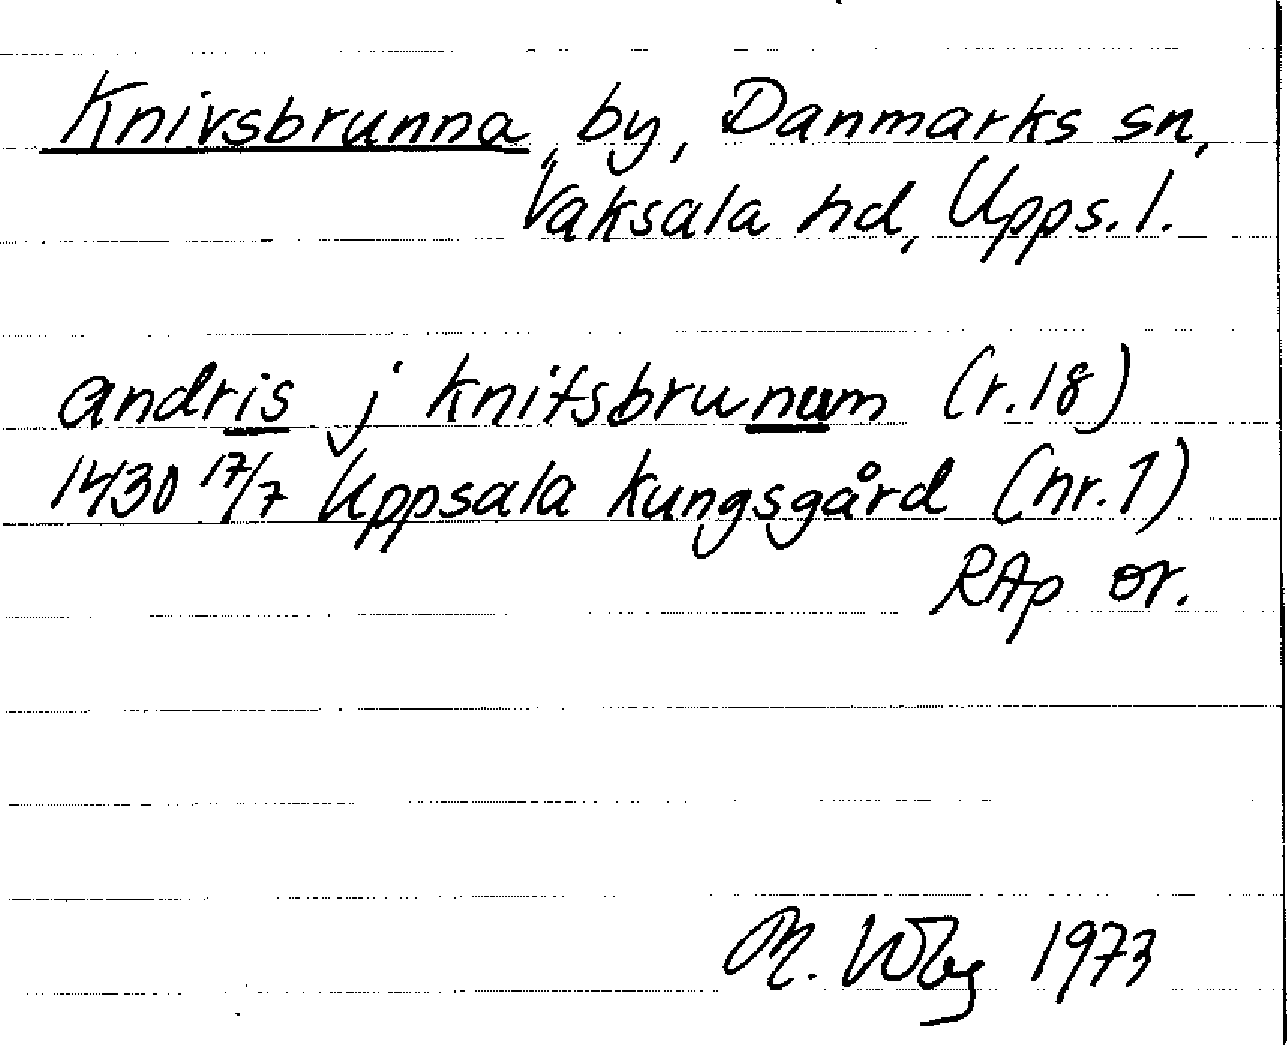 Knivsbrunna, by, Danmarks sn,
Vaksala hd, Upps. l.
andris j knifsbrunum (r.18)
1430 17/7 Uppsala kungsgård (nr.1)
RAp or.
M. 1973